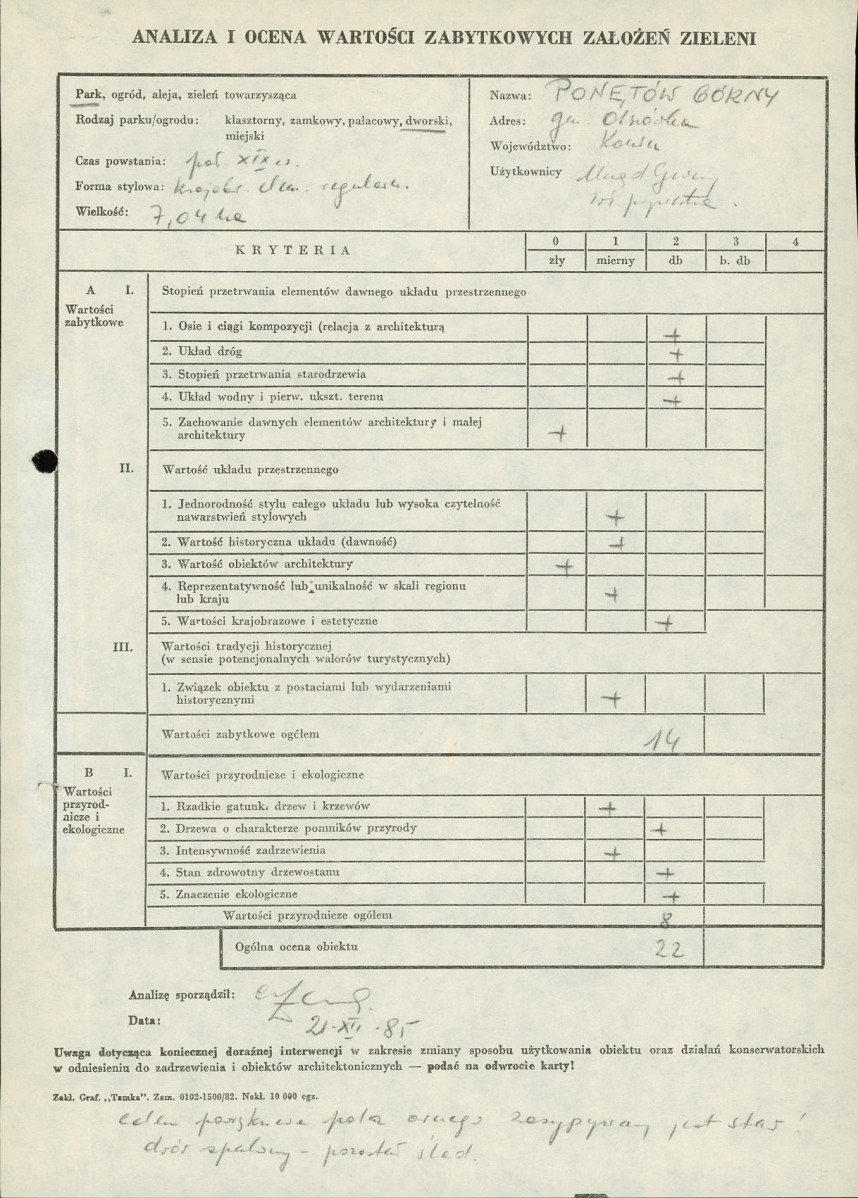 ANALIZA I OCENA WARTOŚCI ZABYTKOWYCH ZAŁOŻEŃ ZIELENI
Park, ogród, aleja, zieleń towarzysząca
Rodzaj parku/ogrodu: klasztorny, zamkowy, pałacowy, dworski,
miejski
Czas powstania: poł. XIX w.
Forma stylowa: krajobr. elem. regularn.
Wielkość: 7,04 ha
Nazwa: PONĘTÓW GÓRNY
Adres: gm. Olszówka
Województwo: Konin
Użytkownicy Urząd Gminy
KRYTERIA
0 1 2 3 4
zły mierny db b. db
A I. Stopień przetrwania elementów dawnego układu przestrzennego
Wartości
zabytkowe
1. Osie i ciągi kompozycji (relacja z architekturą +
2. Układ dróg +
3. Stopień przetrwania starodrzewia +
4. Układ wodny i pierw. ukszt. terenu +
5. Zachowanie dawnych elementów architektury i małej
architektury +
II. Wartość układu przestrzennego
1. Jednorodność stylu całego układu lub wysoka czytelność
nawarstwień stylowych +
2. Wartość historyczna układu (dawność) +
3. Wartość obiektów architektury +
4. Reprezentatywność lub unikalność w skali regionu
lub kraju +
5. Wartości krajobrazowe i estetyczne +
III. Wartości tradycji historycznej
(w sensie potencjonalnych walorów turystycznych)
1. Związek obiektu z postaciami lub wydarzeniami
historycznymi +
Wartości zabytkowe ogółem 14
B I. Wartości przyrodnicze i ekologiczne
Wartości
przyrod-
nicze i
ekologiczne
1. Rzadkie gatunki drzew i krzewów +
2. Drzewa o charakterze pomników przyrody +
3. Intensywność zadrzewienia +
4. Stan zdrowotny drzewostanu +
5. Znaczenie ekologiczne +
Wartości przyrodnicze ogółem 8
Ogólna ocena obiektu 22
Analizę sporządził:
Data: 21-XII-85
Uwaga dotycząca koniecznej doraźnej interwencji w zakresie zmiany sposobu użytkowania obiektu oraz działań konserwatorskich
w odniesieniu do zadrzewienia i obiektów architektonicznych — podać na odwrocie karty!
Zakł. Graf. „Tamka". Zam. 0102-1500/82. Nakł. 10 000 egz.
celem pozyskania pola ornego zasypywany jest staw!
dwór spalony - pozostał ślad.